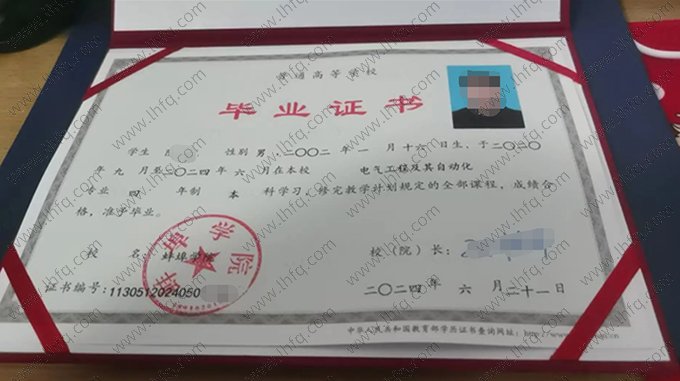 普通高等学校
毕业证书
学生 性别 男，二〇〇二年 一 月十六日生，于二〇二〇
年 九 月至二〇二四年 六 月在本校 电气工程及其自动化
专业 四 年制 本 科学习，修完教学计划规定的全部课程，成绩合
格，准予毕业。
校 名：蚌埠学院
校（院）长：
证书编号：1130512024050
二〇二四年 六 月二十一日
中华人民共和国教育部学历证书查询网址：
蚌埠学院
www.lhfq.com